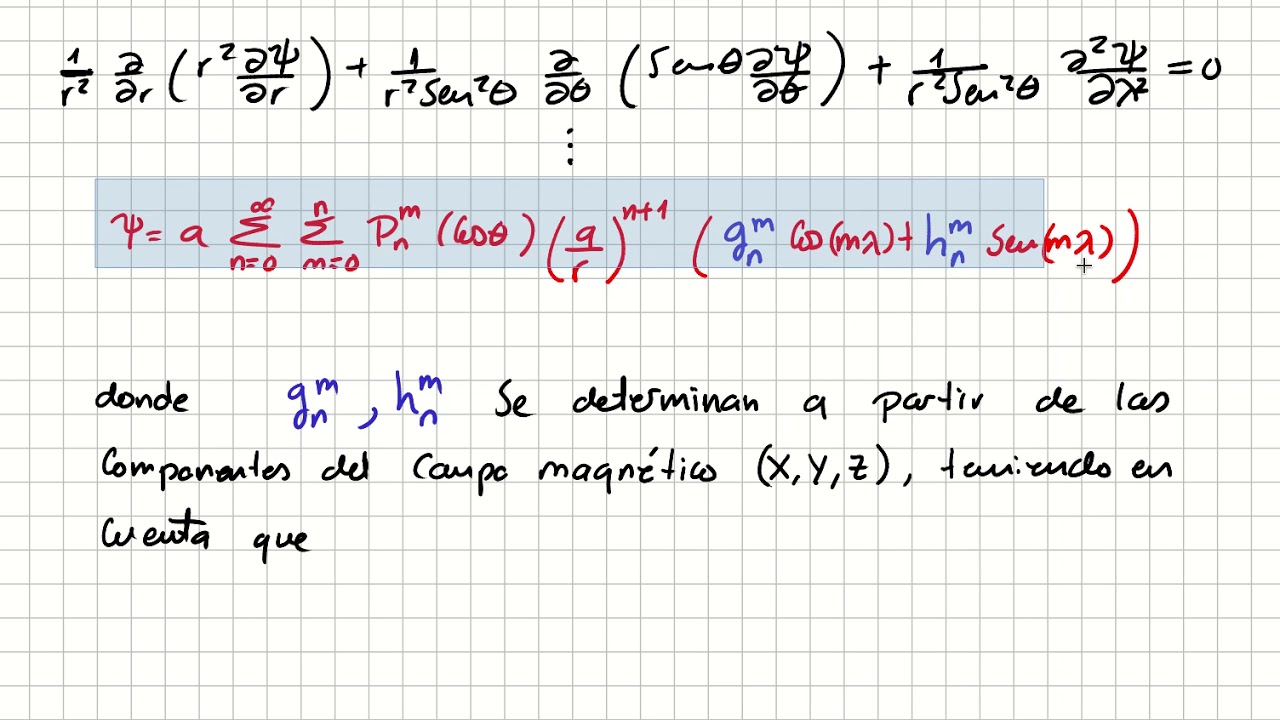 1/r² ∂/∂r (r² ∂Ψ/∂r) + 1/(r² Sen²θ) ∂/∂θ (Senθ ∂Ψ/∂θ) + 1/(r² Sen²θ) ∂²Ψ/∂λ² = 0
⋮
Ψ = a ∑_{n=0}^{∞} ∑_{m=0}^{n} P_n^m (Cosθ) (a/r)^{n+1} (g_n^m Cos(mλ) + h_n^m Sen(mλ))
donde g_n^m, h_n^m Se determinan a partir de las
Componentes del Campo magnético (X, Y, Z), teniendo en
Cuenta que